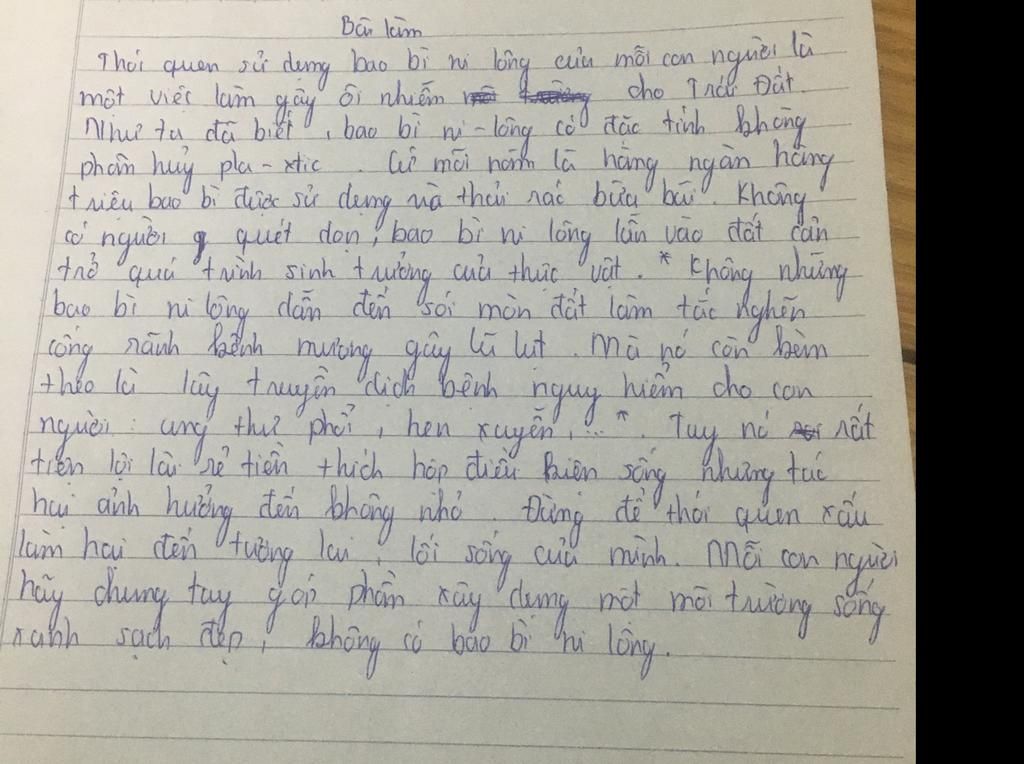 Bài làm
Thói quen sử dụng bao bì ni lông của mỗi con người là
một việc làm gây ôi nhiễm cho Trái Đất.
Như ta đã biết, bao bì ni-lông có đặc tính không
phân huỷ pla-xtic. Cứ mỗi năm là hàng ngàn hàng
triệu bao bì được sử dụng và thải rác bừa bãi. Không
có người quét dọn, bao bì ni lông lẫn vào đất cản
trở quá trình sinh trưởng của thực vật. * Không những
bao bì ni lông dẫn đến sói mòn đất làm tắc nghẽn
cống rãnh kênh mương gây lũ lụt. Mà nó còn kèm
theo là lây truyền dịch bệnh nguy hiểm cho con
người: ung thư phổi, hen xuyễn, ... *. Tuy nó rất
tiện lợi lại rẻ tiền thích hợp điều kiện sống nhưng tác
hại ảnh hưởng đến không nhỏ. Đừng để thói quen xấu
làm hại đến tương lai, lối sống của mình. Mỗi con người
hãy chung tay góp phần xây dựng một môi trường sống
xanh sạch đẹp, không có bao bì ni lông.